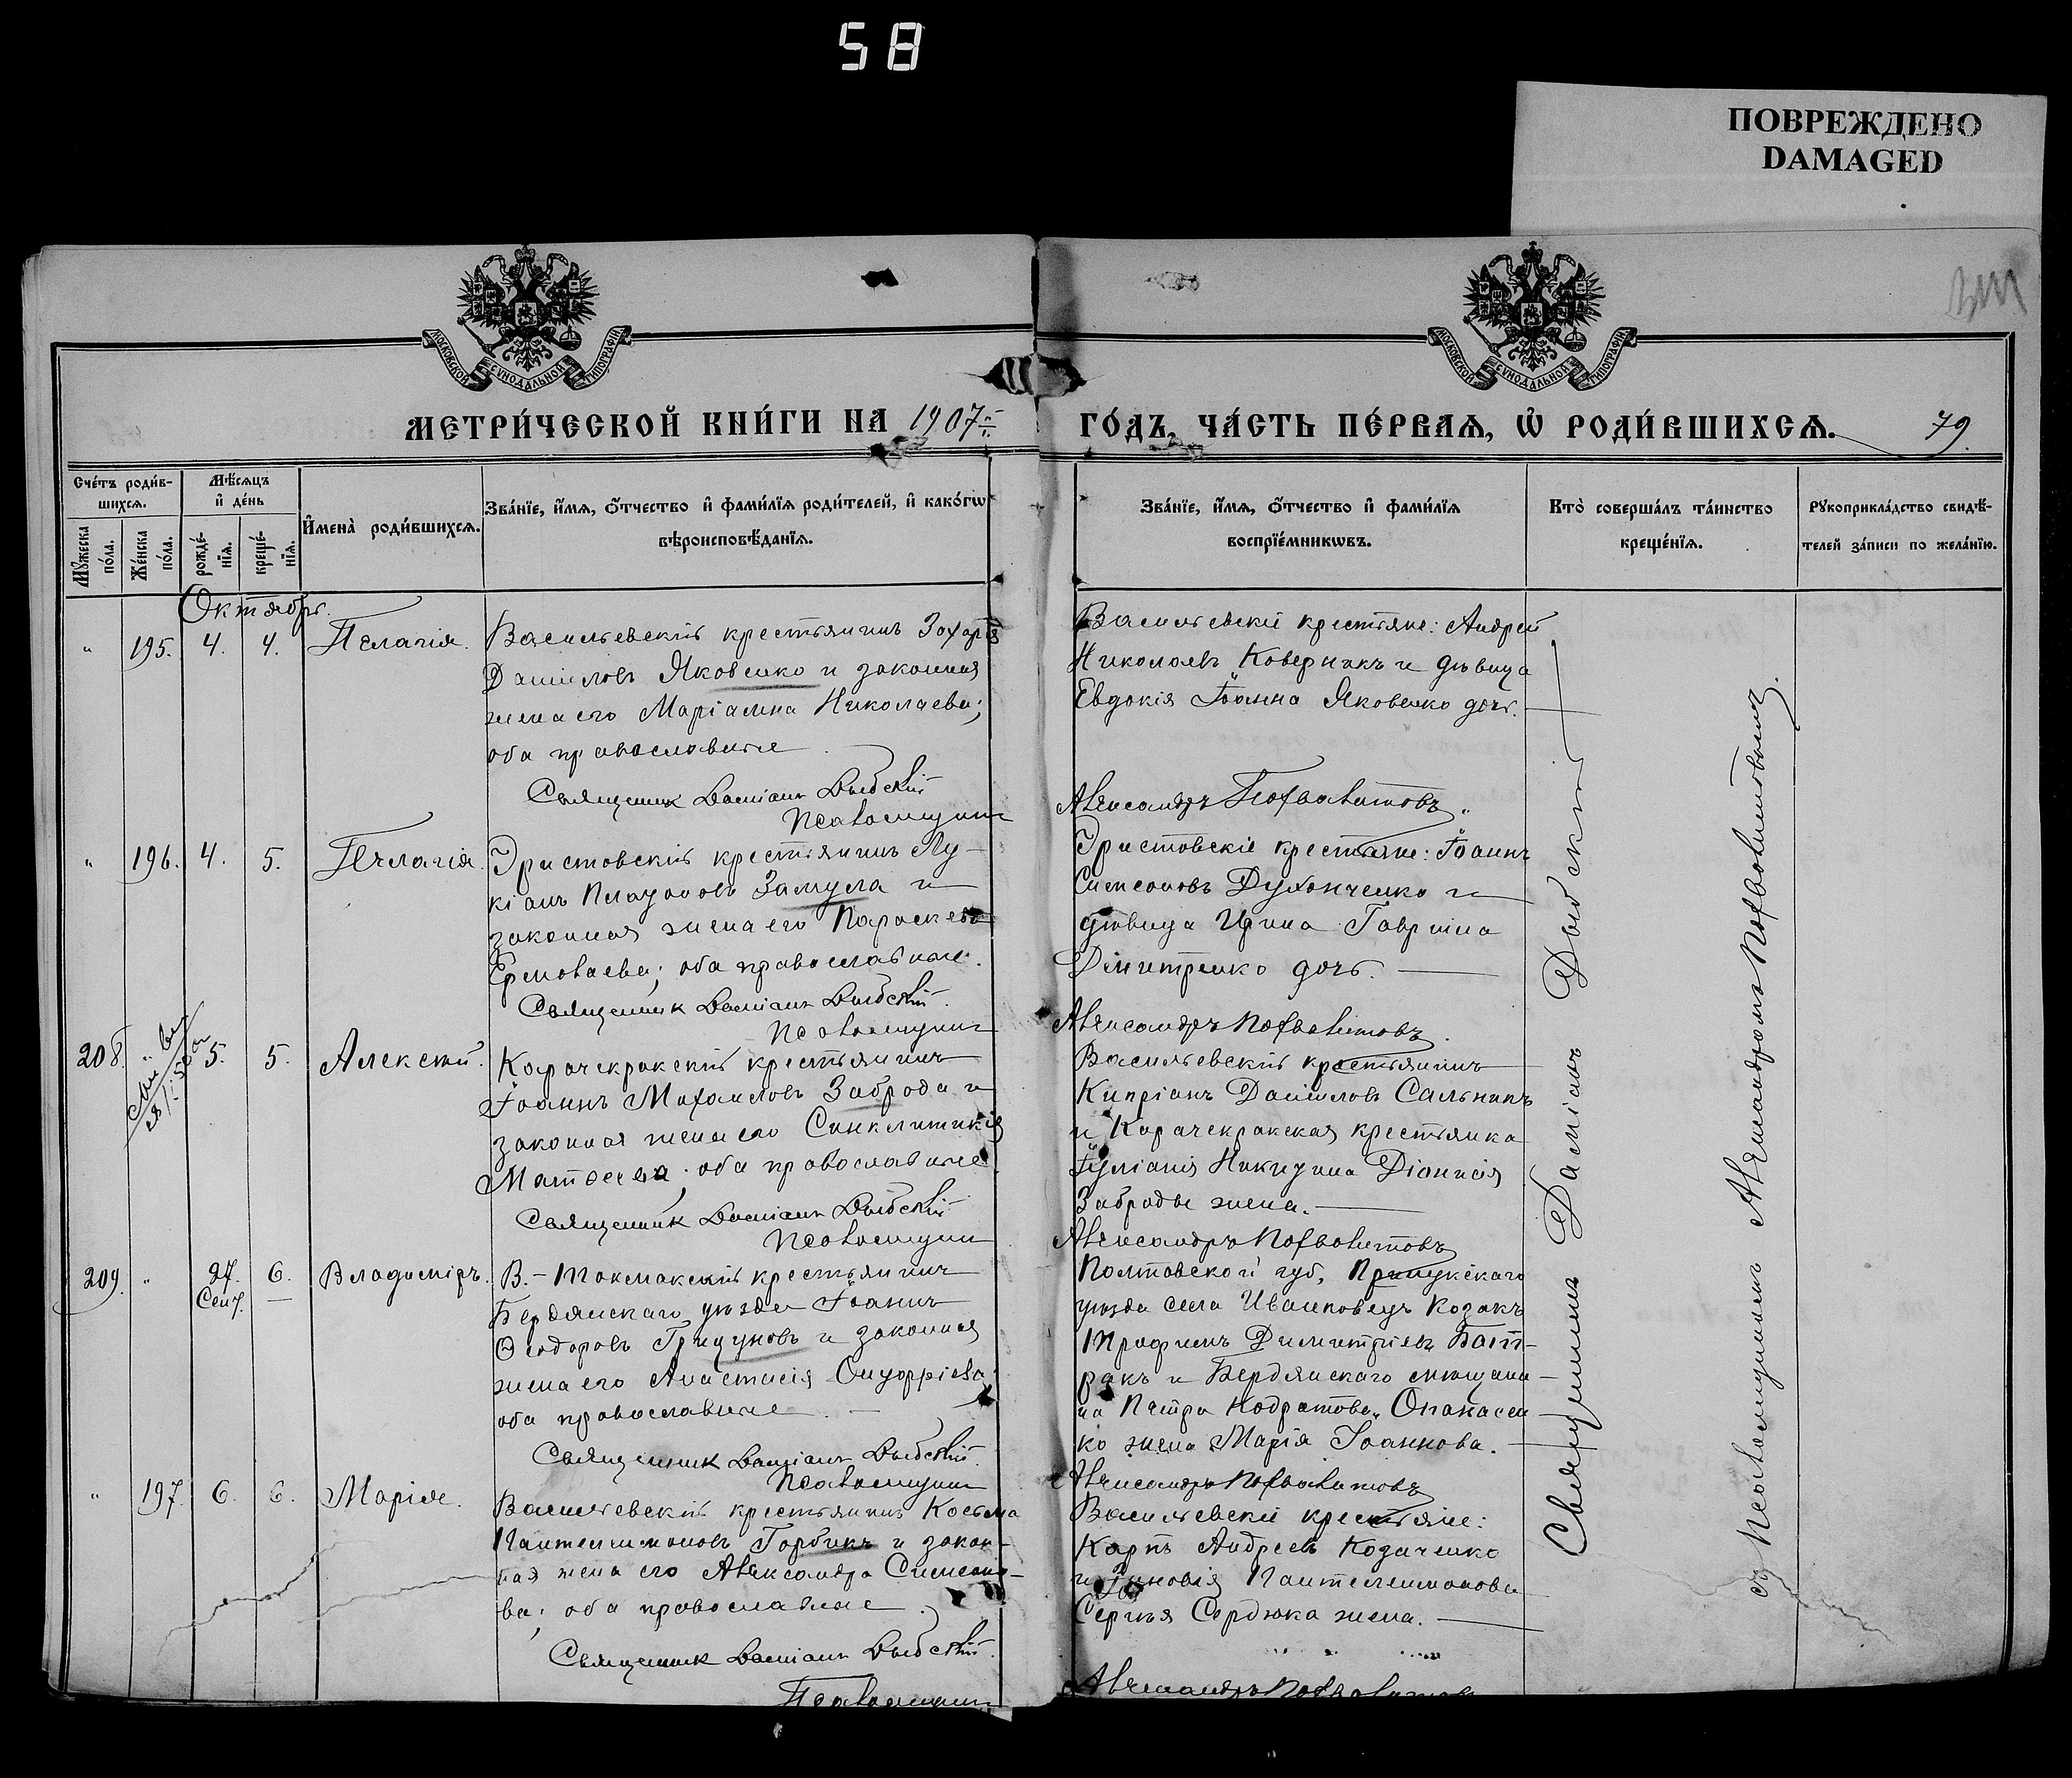 58
ПОВРЕЖДЕНО
DAMAGED
МОСКОВСКОЙ СѴНОДАЛЬНОЙ ТИПОГРАФІИ
МОСКОВСКОЙ СѴНОДАЛЬНОЙ ТИПОГРАФІИ
МЕТРИ́ЧЕСКОЙ КНИ́ГИ НА 1907
ГО́ДЪ, ЧА́СТЬ ПЕ́РВАѦ, Ѡ РОДИ́ВШИХСѦ.
79.
Сче́тъ роди́в-
шихсѧ.
Мꙋ́жеска
по́ла.
Же́нска
по́ла.
Мѣ́сѧцъ
и де́нь
рожде́-
нїѧ.
креще́-
нїѧ.
Имена̀ роди́вшихсѧ.
Зва́нїе, и́мѧ, ѻ́тчество и фами́лїѧ роди́телей, и како́гѡ
вѣроисповѣ́данїѧ.
Зва́нїе, и́мѧ, ѻ́тчество и фами́лїѧ
воспрїе́мникѡвъ.
Кто̀ соверша́лъ та́инство
креще́нїѧ.
Рꙋкоприкла́дство свидѣ́-
телей за́писи по жела́нїю.
Октябрь.
" 195. 4. 4. Пелагія.
Васильевскій крестьянинъ Захарія
Даніиловъ Яковенко и законная
жена его Маріамна Николаева;
оба православные
Священникъ Даміанъ Дыбскій
Псаломщикъ
Васильевскіе крестьяне: Андрей
Николаевъ Коверникъ и дѣвица
Евдокія Іоанна Яковенко дочь.
Александръ Похвалитовъ.
" 196. 4. 5. Пелагія.
Эристовскій крестьянинъ Лу-
кіанъ Платоновъ Замула и
законная жена его Параскева
Ермолаева; оба православные.
Священникъ Даміанъ Дыбскій.
Псаломщикъ
Эристовскіе крестьяне: Іоаннъ
Симеоновъ Духонченко и
дѣвица Ирина Гавріила
Димитренко дочь.
Александръ Похвалитовъ.
208. " 5. 5. Алексѣй.
Карачекракскій крестьянинъ
Іоаннъ Михаиловъ Заброда и
законная жена его Синклитикія
Матѳеева; оба православные
Священникъ Даміанъ Дыбскій
Псаломщикъ
Васильевскій крестьянинъ
Кипріанъ Даніиловъ Сальникъ
и Карачекракская крестьянка
Іуліанія Никитина Діонисія
Заброды жена.
Александръ Похвалитовъ
209. " 27. Сент. 6. Владиміръ.
В.-Токмакскій крестьянинъ
Бердянскаго уѣзда Іоаннъ
Ѳеодоровъ Грицуновъ и законная
жена его Анастасія Онуфріева;
оба православные.
Священникъ Даміанъ Дыбскій.
Псаломщикъ
Полтавской губ, Прилукскаго
уѣзда села Иванковецъ козакъ
Трофимъ Димитріевъ Бат-
ракъ и Бердянскаго мѣщани-
на Петра Кодратова Опанасен-
ко жена Марія Іоаннова.
Александръ Похвалитовъ
" 197. 6. 6. Марія.
Васильевскій крестьянинъ Косьма
Пантелеимоновъ Горбикъ и закон-
ная жена его Александра Симеоно-
ва; оба православные
Священникъ Даміанъ Дыбскій.
Псаломщикъ
Васильевскіе крестьяне:
Карпъ Андреевъ Козаченко
и Зиновія Пантелеимонова
Сергѣя Сердюка жена.
Александръ Похвалитовъ
Священникъ Даміанъ Дыбскій
съ Псаломщикомъ Александромъ Похвалитовымъ.